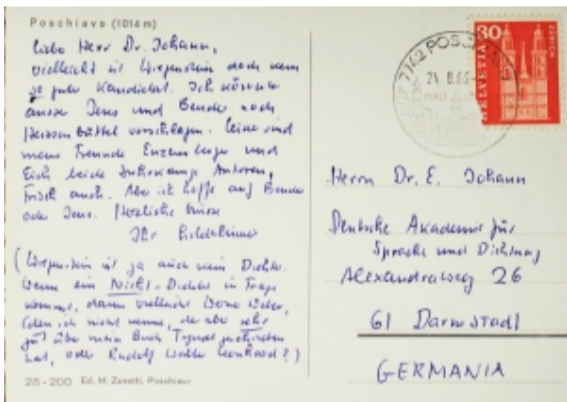 Poschiavo (1014 m)
Lieber Herr Dr. Johann,
vielleicht ist Wiegenstein doch kein
so guter Kandidat. Ich könnte
ausser Jens und Bender noch
Heissenbüttel vorschlagen. Leider sind
meine Freunde Enzensberger und
Eich beide Suhrkamp Autoren,
Frisch auch. Aber ich hoffe auf Bender
oder Jens. Herzliche Grüsse
Ihr Hildesheimer
(Wiegenstein ist ja auch kein Dichter.
Wenn ein Nicht-Dichter in Frage
kommt, dann vielleicht Werner Weber,
(den ich nicht kenne, der aber sehr
gut über mein Buch Tynset geschrieben
hat, oder Rudolf Walter Leonhardt?)
28-200 Ed. M. Zanetti, Poschiavo
7742 POSCHIAVO
HELVETIA
30
ZÜRICH
Herrn Dr. E. Johann
Deutsche Akademie für
Sprache und Dichtung
Alexandraweg 26
61 Darmstadt
GERMANIA